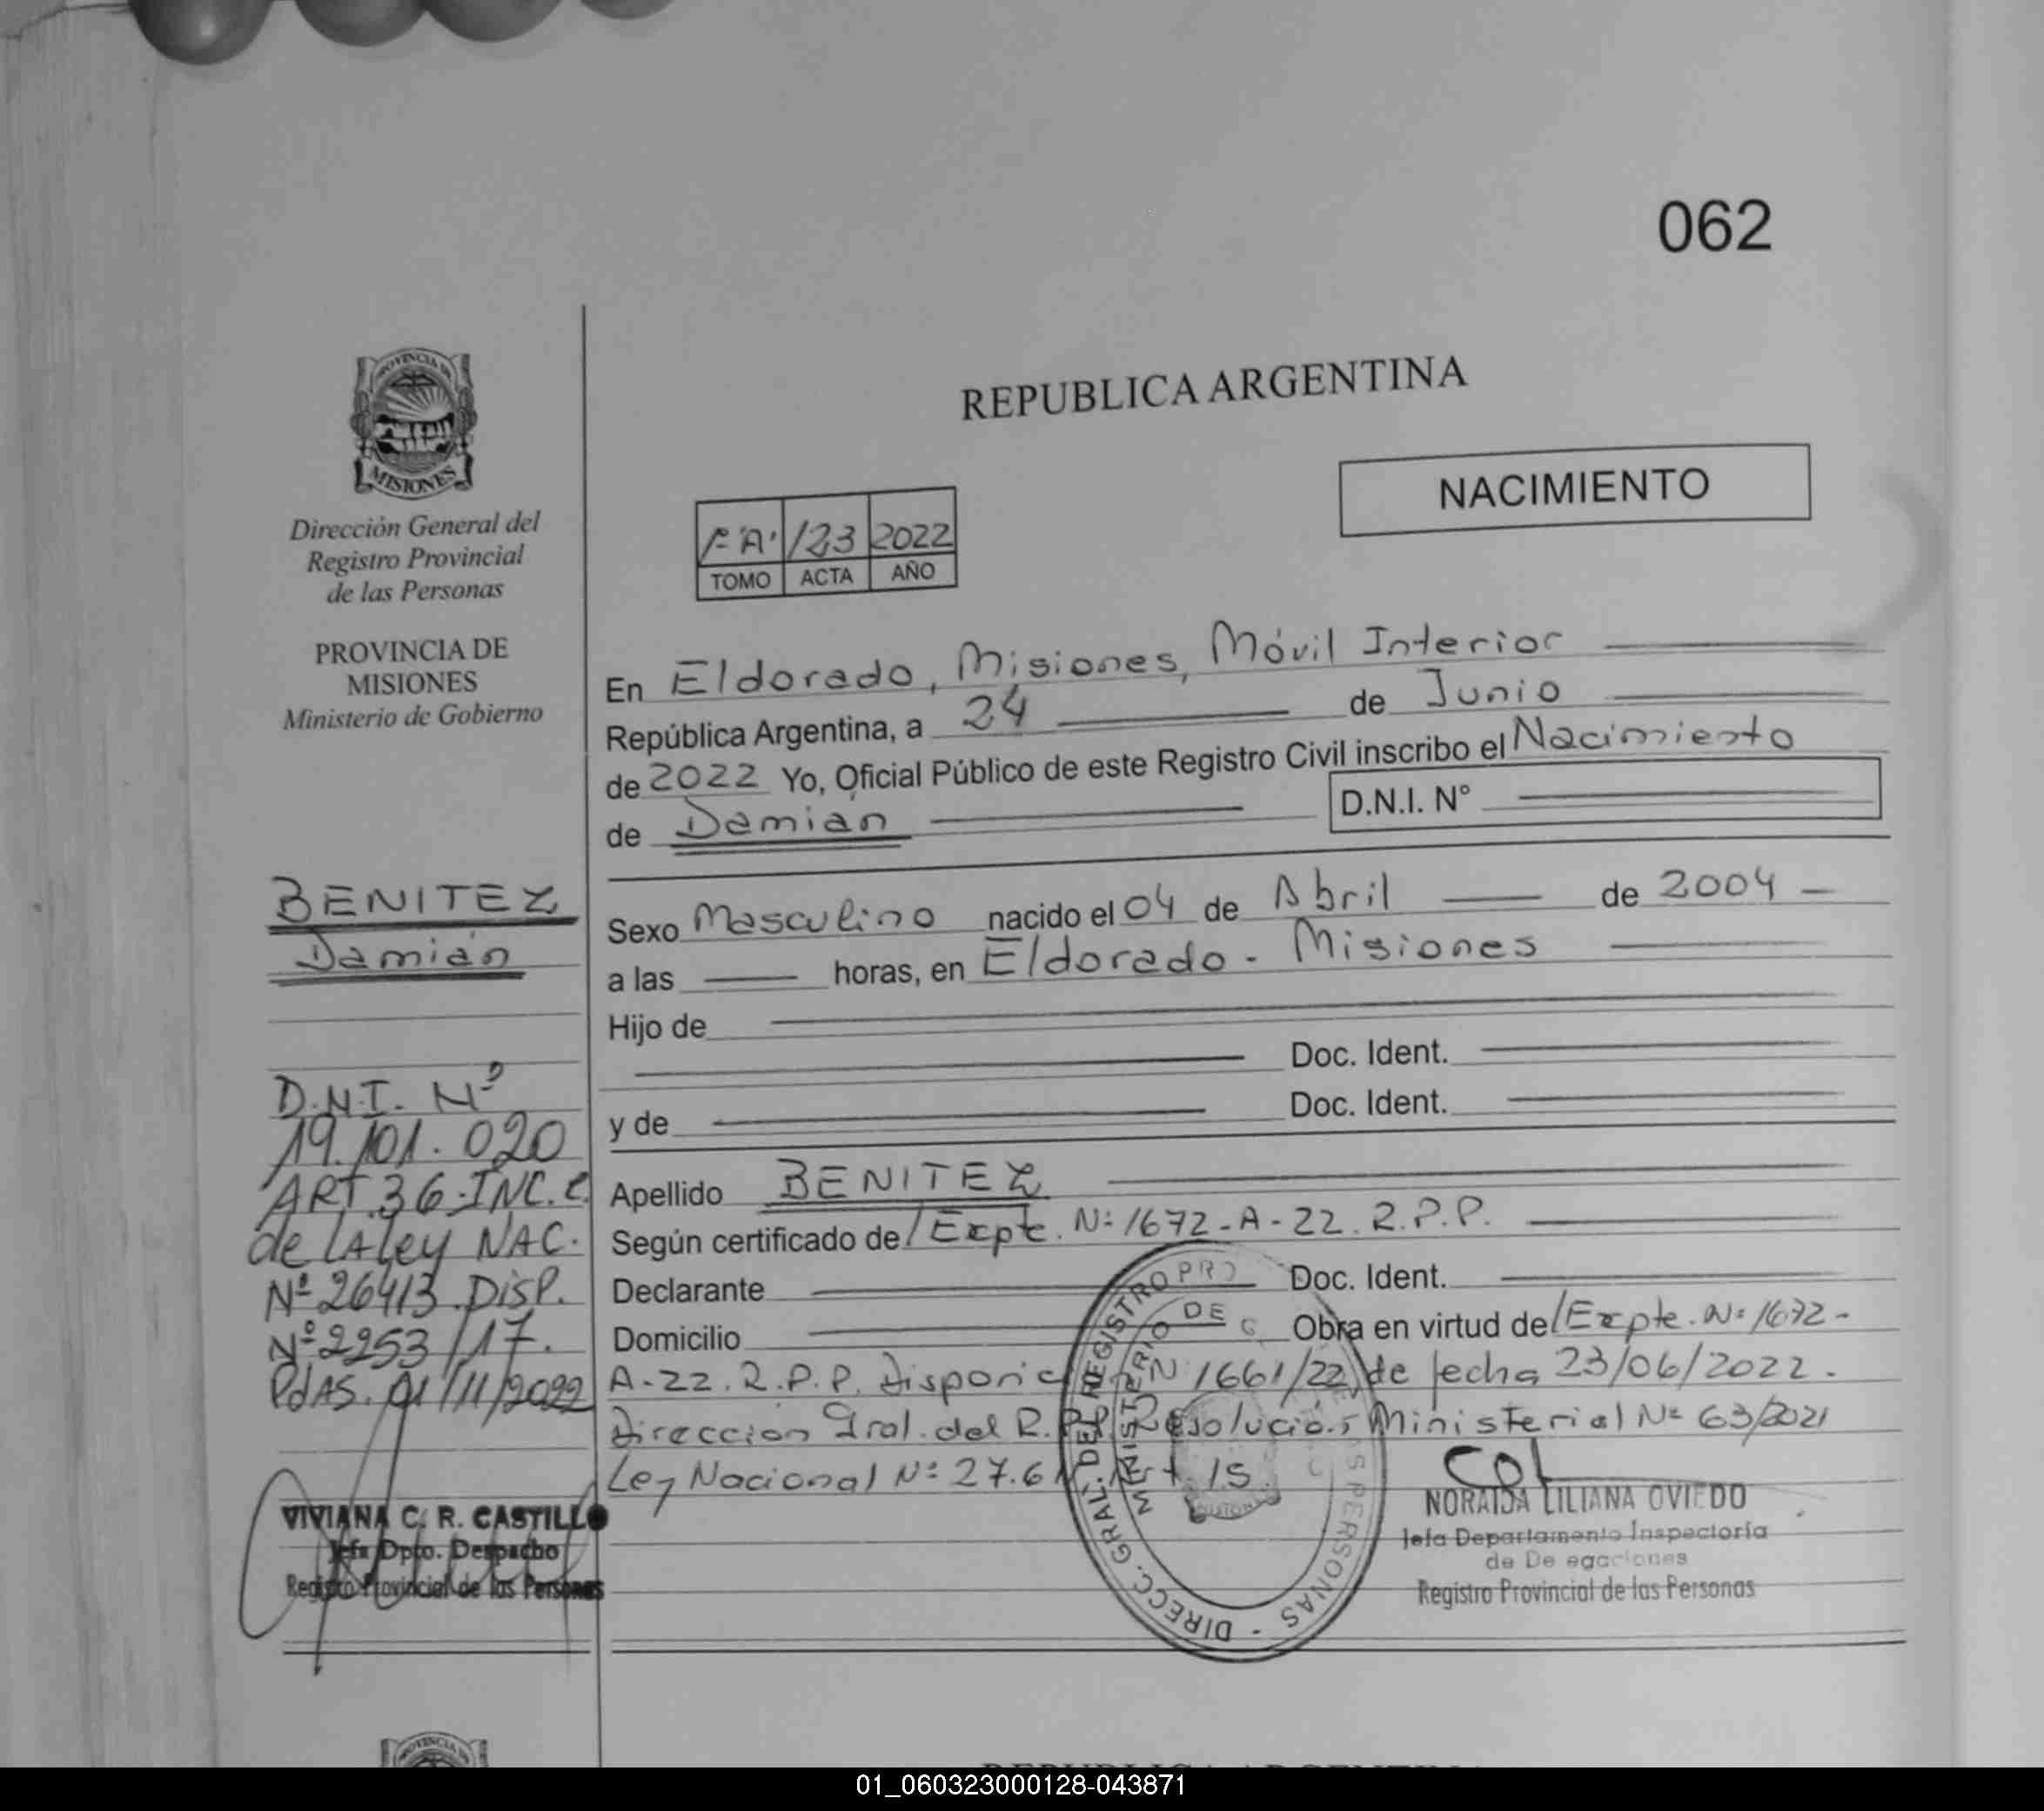 062
REPUBLICA ARGENTINA
NACIMIENTO
PROVINCIA DE
MISIONES
Dirección General del
Registro Provincial
de las Personas
PROVINCIA DE
MISIONES
Ministerio de Gobierno
123 2022
TOMO ACTA AÑO
En Eldorado, Misiones, Móvil Interior
República Argentina, a 24 de Junio
de 2022 Yo, Oficial Público de este Registro Civil inscribo el Nacimiento
de Damián D.N.I. N°
Sexo Masculino nacido el 04 de Abril de 2004
a las horas, en Eldorado - Misiones
Hijo de
Doc. Ident.
y de Doc. Ident.
Apellido BENITEZ
Según certificado de/ Expte. Nº 1672-A-22. R.P.P.
Declarante Doc. Ident.
Domicilio Obra en virtud de/ Expte. Nº 1672-
A-22. R.P.P. N 1661/22 de fecha 23/06/2022.
Dirección Gral. del R.P.P. Resolución Ministerial Nº 63/2021
Ley Nacional Nº 27.6 15
BENITEZ
Damián
D.N.I. Nº
19.101.020
ART.36-INC.C
de LA ley NAC.
Nº 26413. DISP.
Nº 2253/17.
PdAS. 01/11/2022
VIVIANA C. R. CASTILLO
Jefa Dpto. Despacho
Registro Provincial de las Personas
DIRECC. GRAL. DEL REGISTRO PRO
PERSONAS
MINISTERIO DE G
NORAIDA LILIANA OVIEDO
Jefa Departamento Inspectoría
de De egaciones
Registro Provincial de las Personas
PROVINCIA DE
REPUBLICA ARGENTINA
01_060323000128-043871